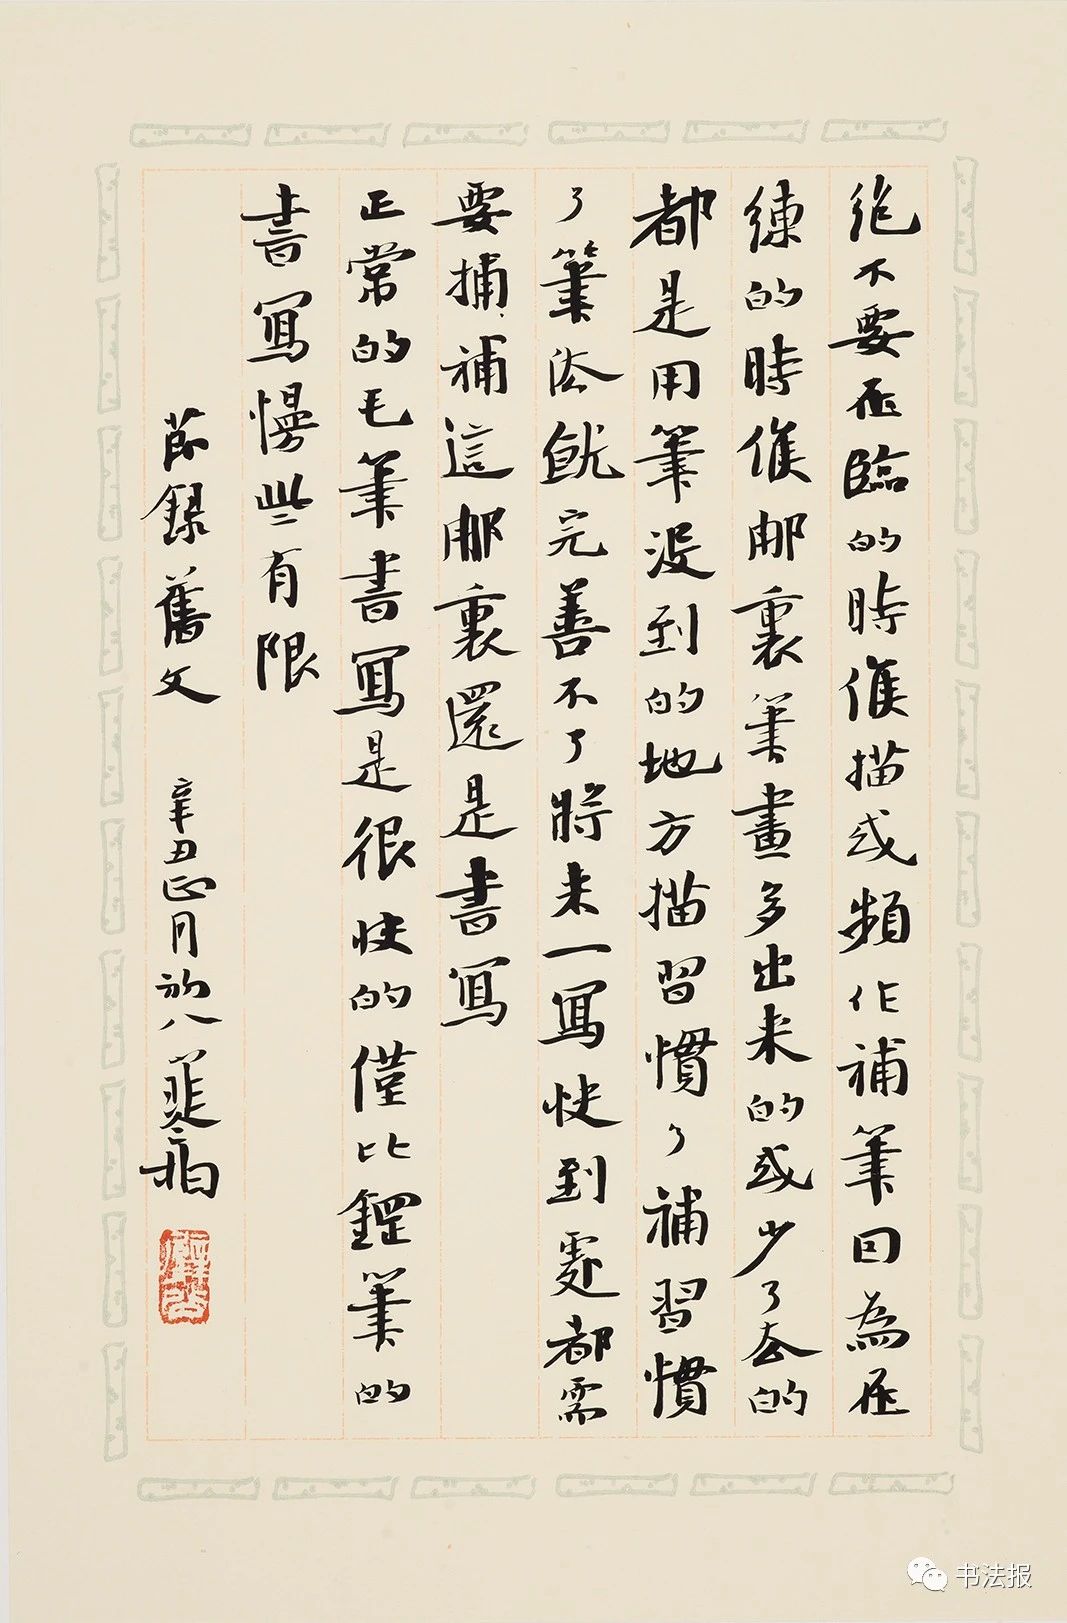 絶不要在臨的時候描或頻作補筆因為在
練的時候那裏筆畫多出來的或少了去的
都是用筆没到的地方描習慣了補習慣
了筆法就完善不了將来一寫快到處都需
要捕補這那裏還是書寫
正常的毛筆書寫是很快的僅比鋼筆的
書寫慢些有限
節録舊文 辛丑正月初八
书法报